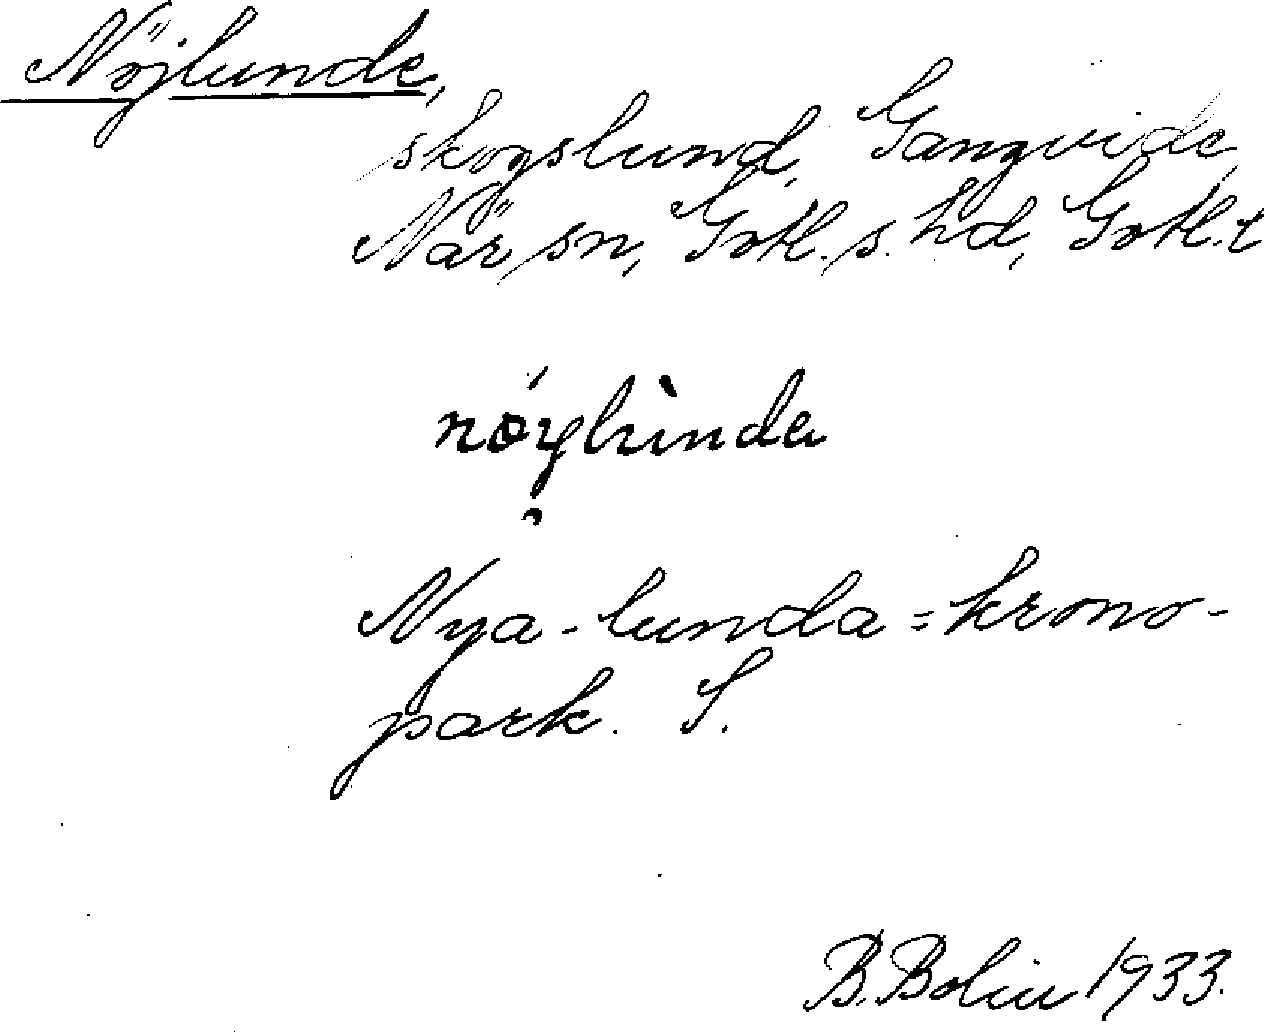 Nöjlunde,
skogslund, Gangvide,
När sn, Gotl. s. hd, Gotl. l
Nya-lunda = krono-
park. S.
B. Bolin 1933.